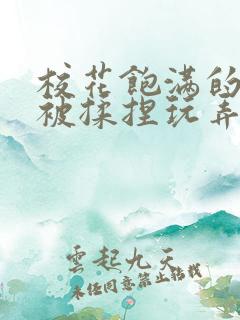 校花飽满的
被揉捏玩弄
雲起九天
未经同意禁止转载